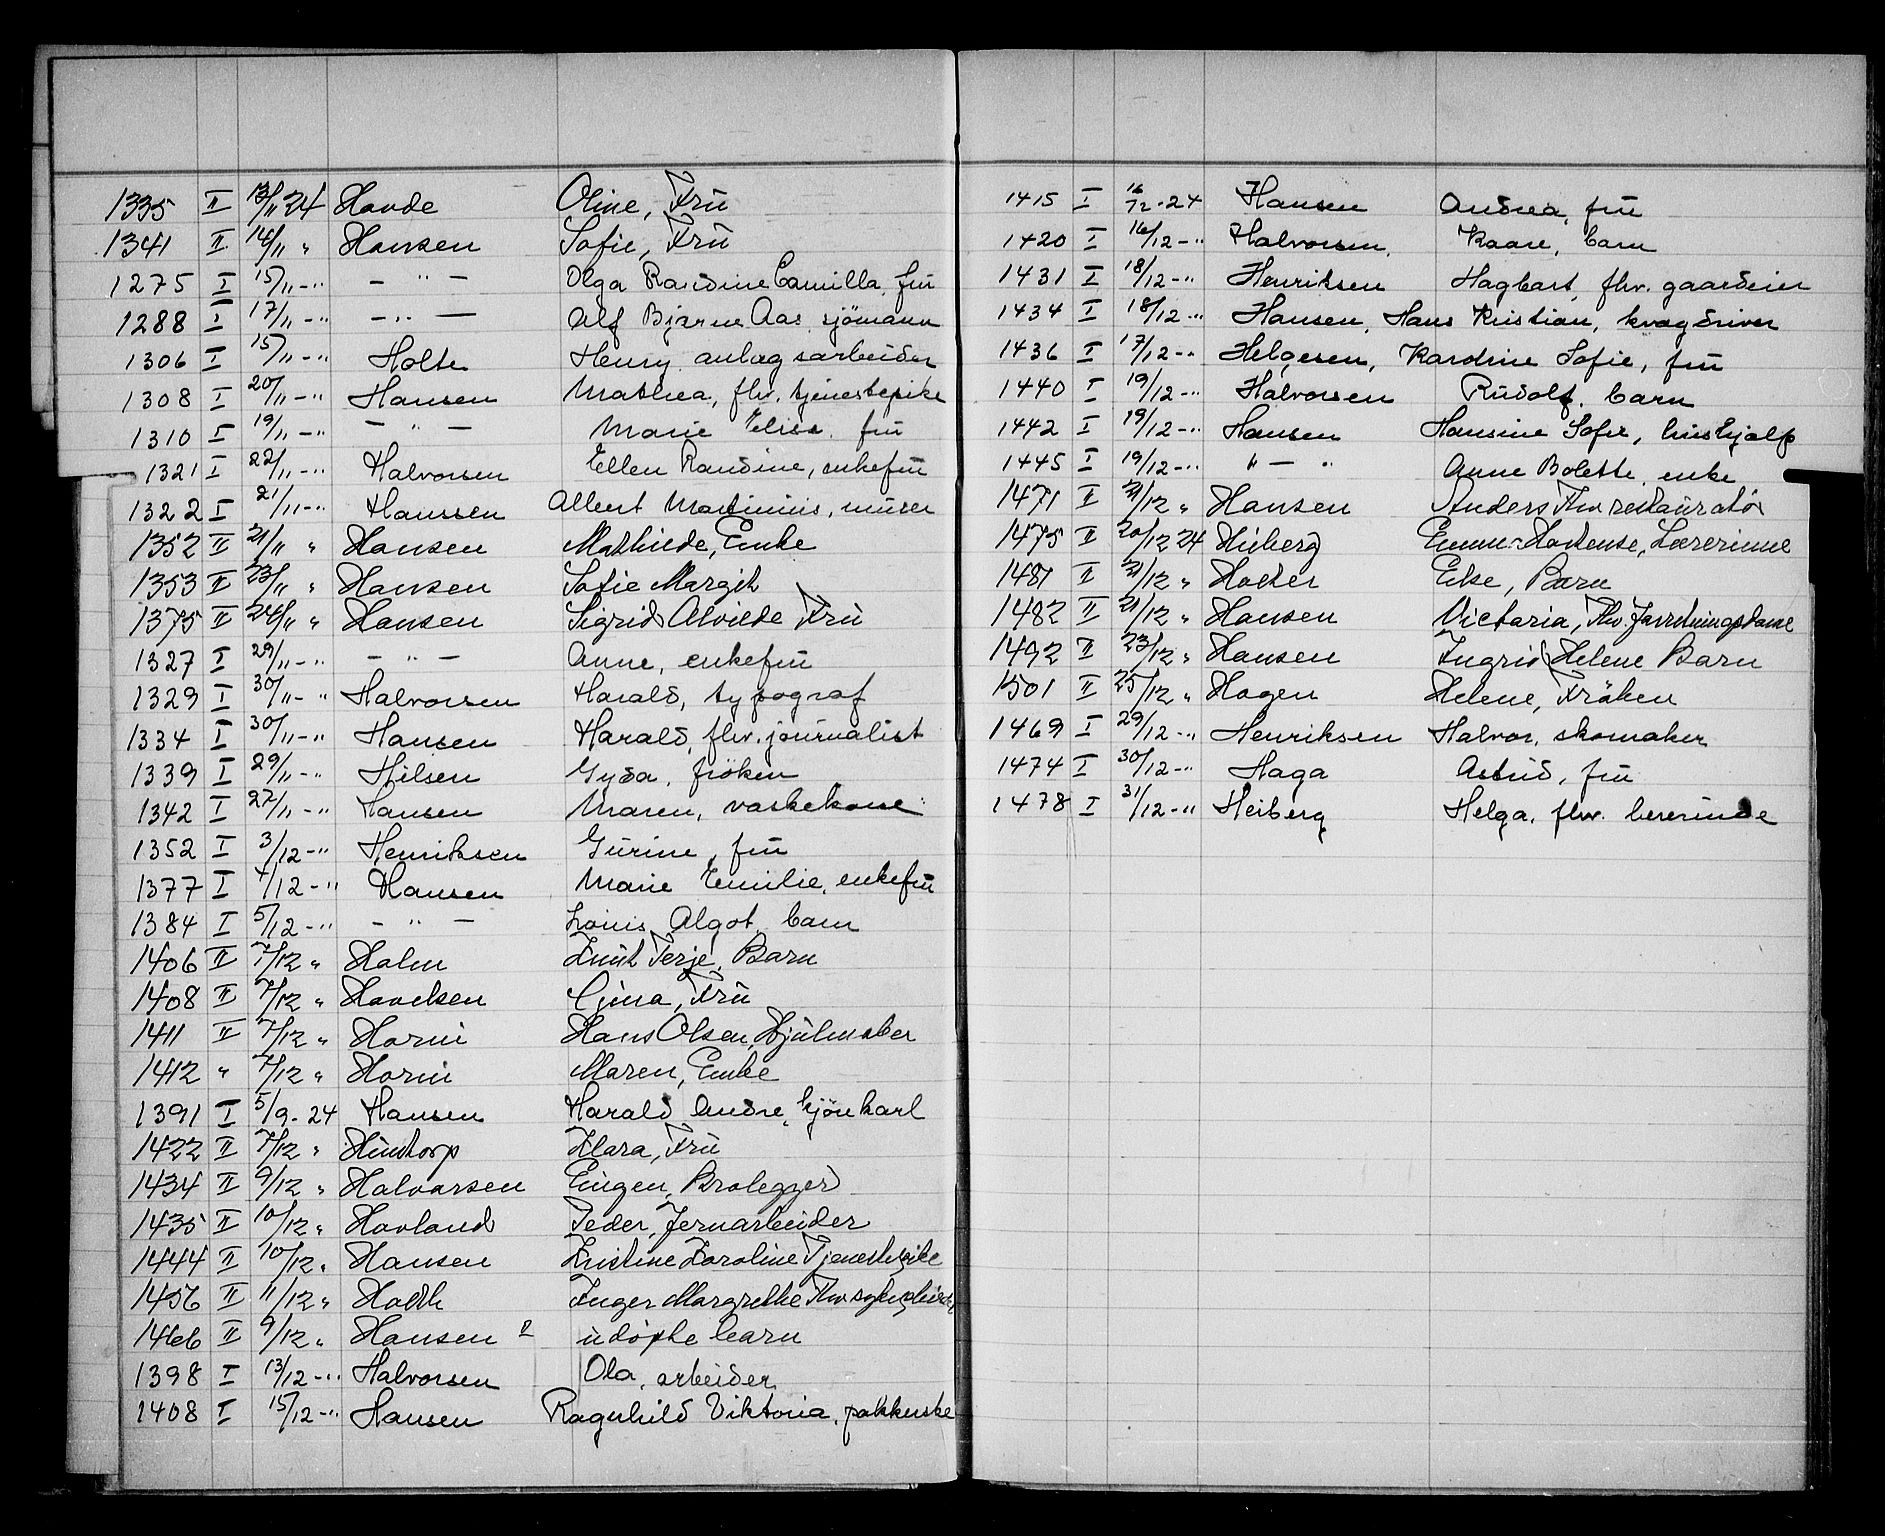 1335 II 13/11 24 Hovde Oline, Frü
1341 II 14/11 " Hansen Sofie, Frü
1275 I 15/11-" - " - Olga Randine Camilla, frü
1288 I 17/11-" - " - Alf Bjarne Aas, sjömann
1306 I 15/11-" Holte Henry, anlægsarbeider
1308 I 20/11-" Hansen Mathea, fhv. tjenestepike
1310 I 19/11-" - " - Marie Elise, frü
1321 I 22/11-" Halvorsen Ellen Randine, enkefrü
1322 I 21/11-" Hanssen Albert Martinius, mürer
1352 II 21/11 " Hansen Mathilde, Enke
1353 II 23/11 " Hansen Sofie Margit
1375 II 24/11 " Hansen Sigrid Alvilde Frü
1327 I 29/11-" - " - Anne, enkefrü
1329 I 30/11-" Halvorsen Harald, typograf
1334 I 30/11-" Hansen Harald, fhv. journalist
1339 I 29/11-" Hilsen Gyda, fröken
1342 I 27/11-" Hansen Maren, vaskekone
1352 I 3/12-" Henriksen Gurine, frü
1377 I 4/12-" Hansen Marie Emilie, enkefrü
1384 I 5/12-" - " - Louis Algot, barn
1406 II 7/12 " Holm Knut Terje, Barn
1408 II 7/12 " Hovelsen Gina, Frü
1411 II 7/12 " Horni Hans Olsen, Hjülmaker
1412 " 7/12 " Horni Maren, Enke
1391 I 5/9-24 Hansen Harald Andre, kjörekarl
1422 II 7/12 " Hüntorp Klara, Frü
1434 II 9/12 " Halvorsen Eugen, Brolegger
1435 II 10/12 " Hovland Peder, Jernarbeider
1444 II 10/12 " Hansen Kristine Karoline Tjenestepike
1456 II 11/12 " Holth Inger Margrethe Fhv
1466 II 9/12 " Hansen 2 udöpte barn
1398 I 13/12-" Halvorsen Ola, arbeider
1408 I 15/12-" Hansen Ragnhild Viktoria, pakkerske
1415 I 16/12-24 Hansen Andrea, frü
1420 I 16/12-" Halvorsen, Kaare, barn
1431 I 18/12-" Henriksen Hagbart, fhv. gaardeier
1434 I 18/12-" Hansen, Hans Kristian, kvægdriver
1436 I 17/12-" Helgesen, Karoline Sofie, frü
1440 I 19/12-" Halvorsen Rüdolf, barn
1442 I 19/12-" Hansen Hansine Sofie, hushjælp
1445 I 19/12-" " - " Anne Bolette, enke
1471 II 21/12 " Hansen Anders Fhv restauratör
1475 II 20/12 24 Hiberg Emma Hortense, Lærerinne
1481 II 21/12 " Holter Else, Barn
1482 II 21/12 " Hansen Victoria, Fhv. Forretningsdame
1492 II 23/12 " Hansen Ingrid Helene Barn
1501 II 25/12 " Hagen Helene, Fröken
1469 I 29/12-" Henriksen Halvor, skomaker
1474 I 30/12-" Haga Astrid, frü
1478 I 31/12-" Heiberg Helga, fhv. lererinde